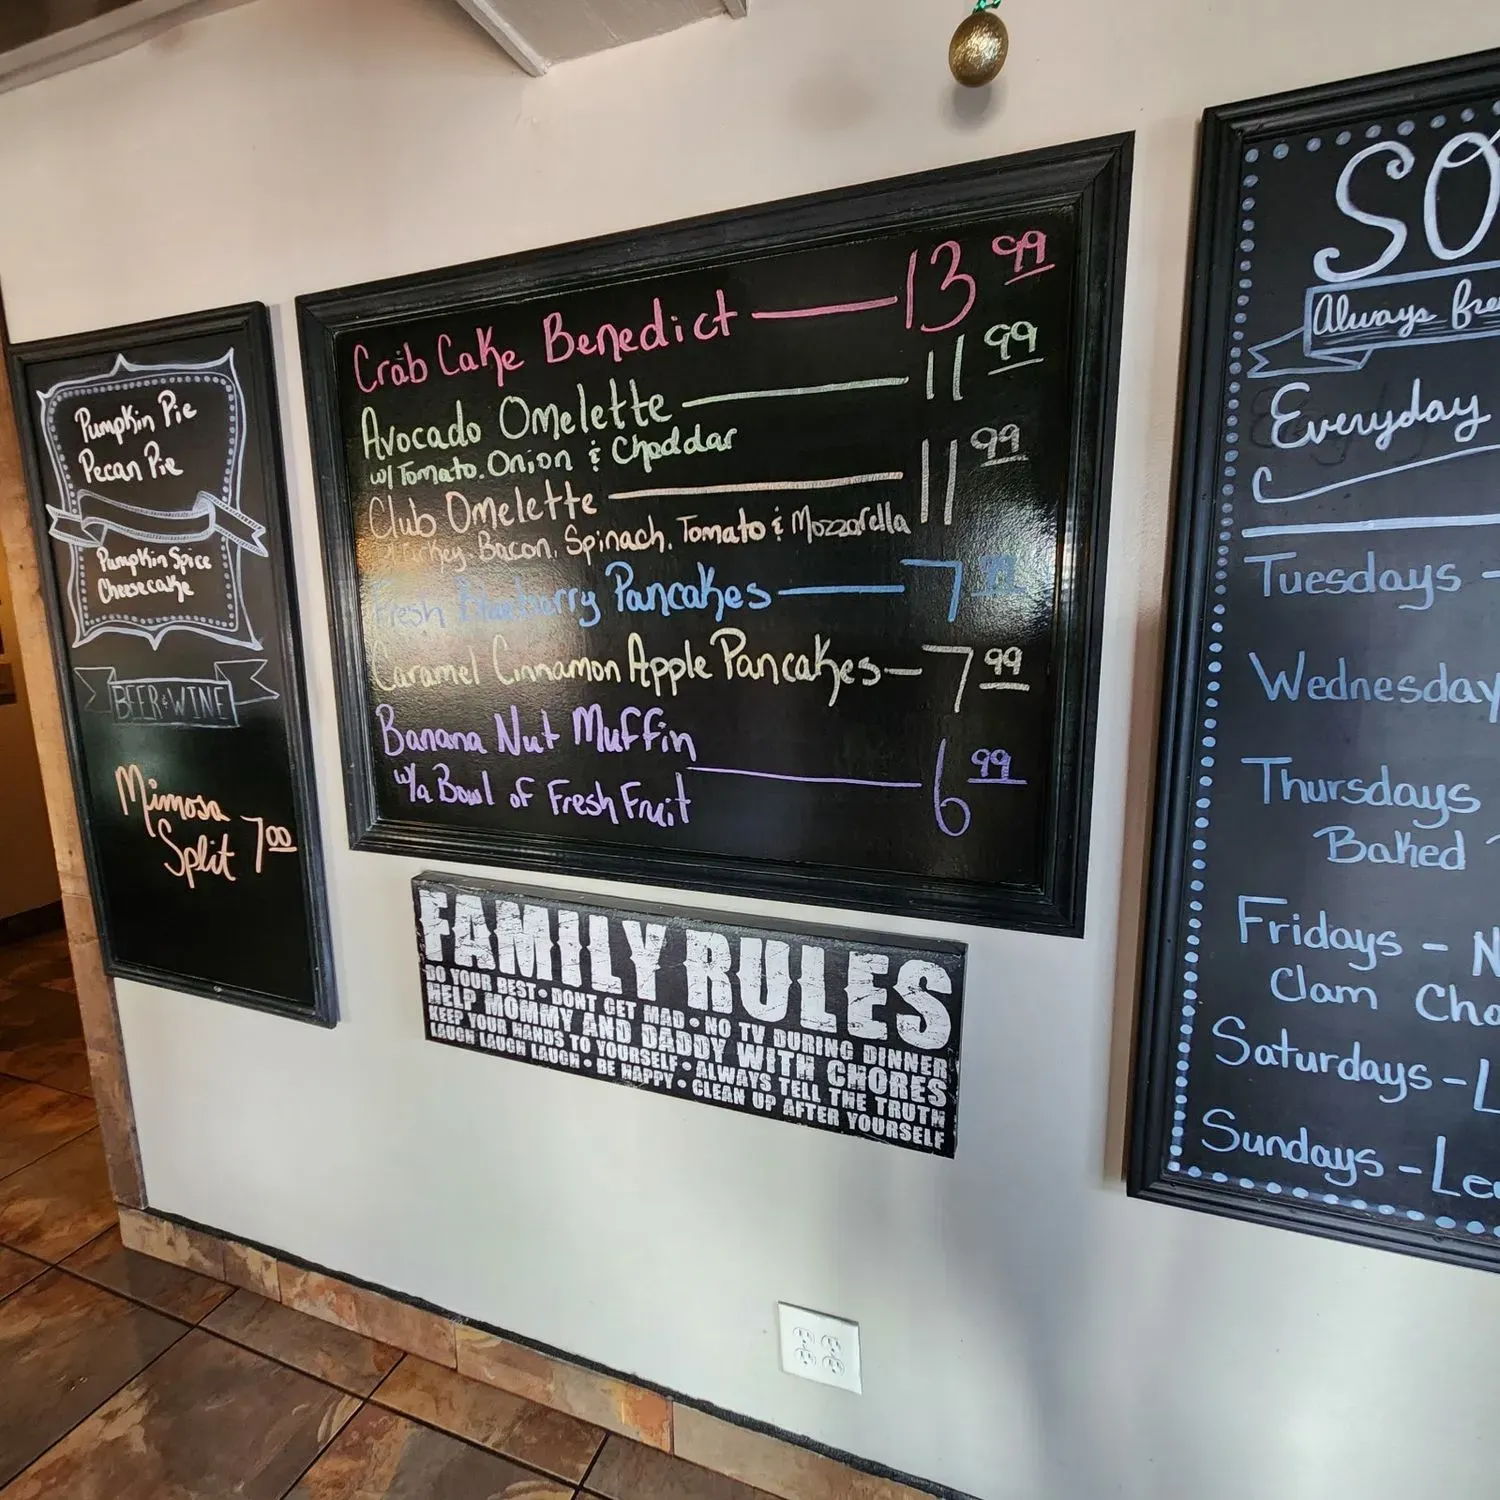 Pumpkin Pie
Pecan Pie
Pumpkin Spice
Cheesecake
BEER & WINE
Mimosa
Split 7.00
Crab Cake Benedict 13.99
Avocado Omelette 11.99
w/ Tomato, Onion & Cheddar
Club Omelette 11.99
Turkey, Bacon, Spinach, Tomato & Mozzarella
Fresh Blueberry Pancakes 7.99
Caramel Cinnamon Apple Pancakes 7.99
Banana Nut Muffin
w/a Bowl of Fresh Fruit 6.99
FAMILY RULES
DO YOUR BEST • DONT GET MAD • NO TV DURING DINNER
HELP MOMMY AND DADDY WITH CHORES
KEEP YOUR HANDS TO YOURSELF • ALWAYS TELL THE TRUTH
LAUGH LAUGH LAUGH • BE HAPPY • CLEAN UP AFTER YOURSELF
SO
Always
Everyday
Tuesdays -
Wednesday
Thursdays
Baked
Fridays - N
Clam Cho
Saturdays - L
Sundays - Le